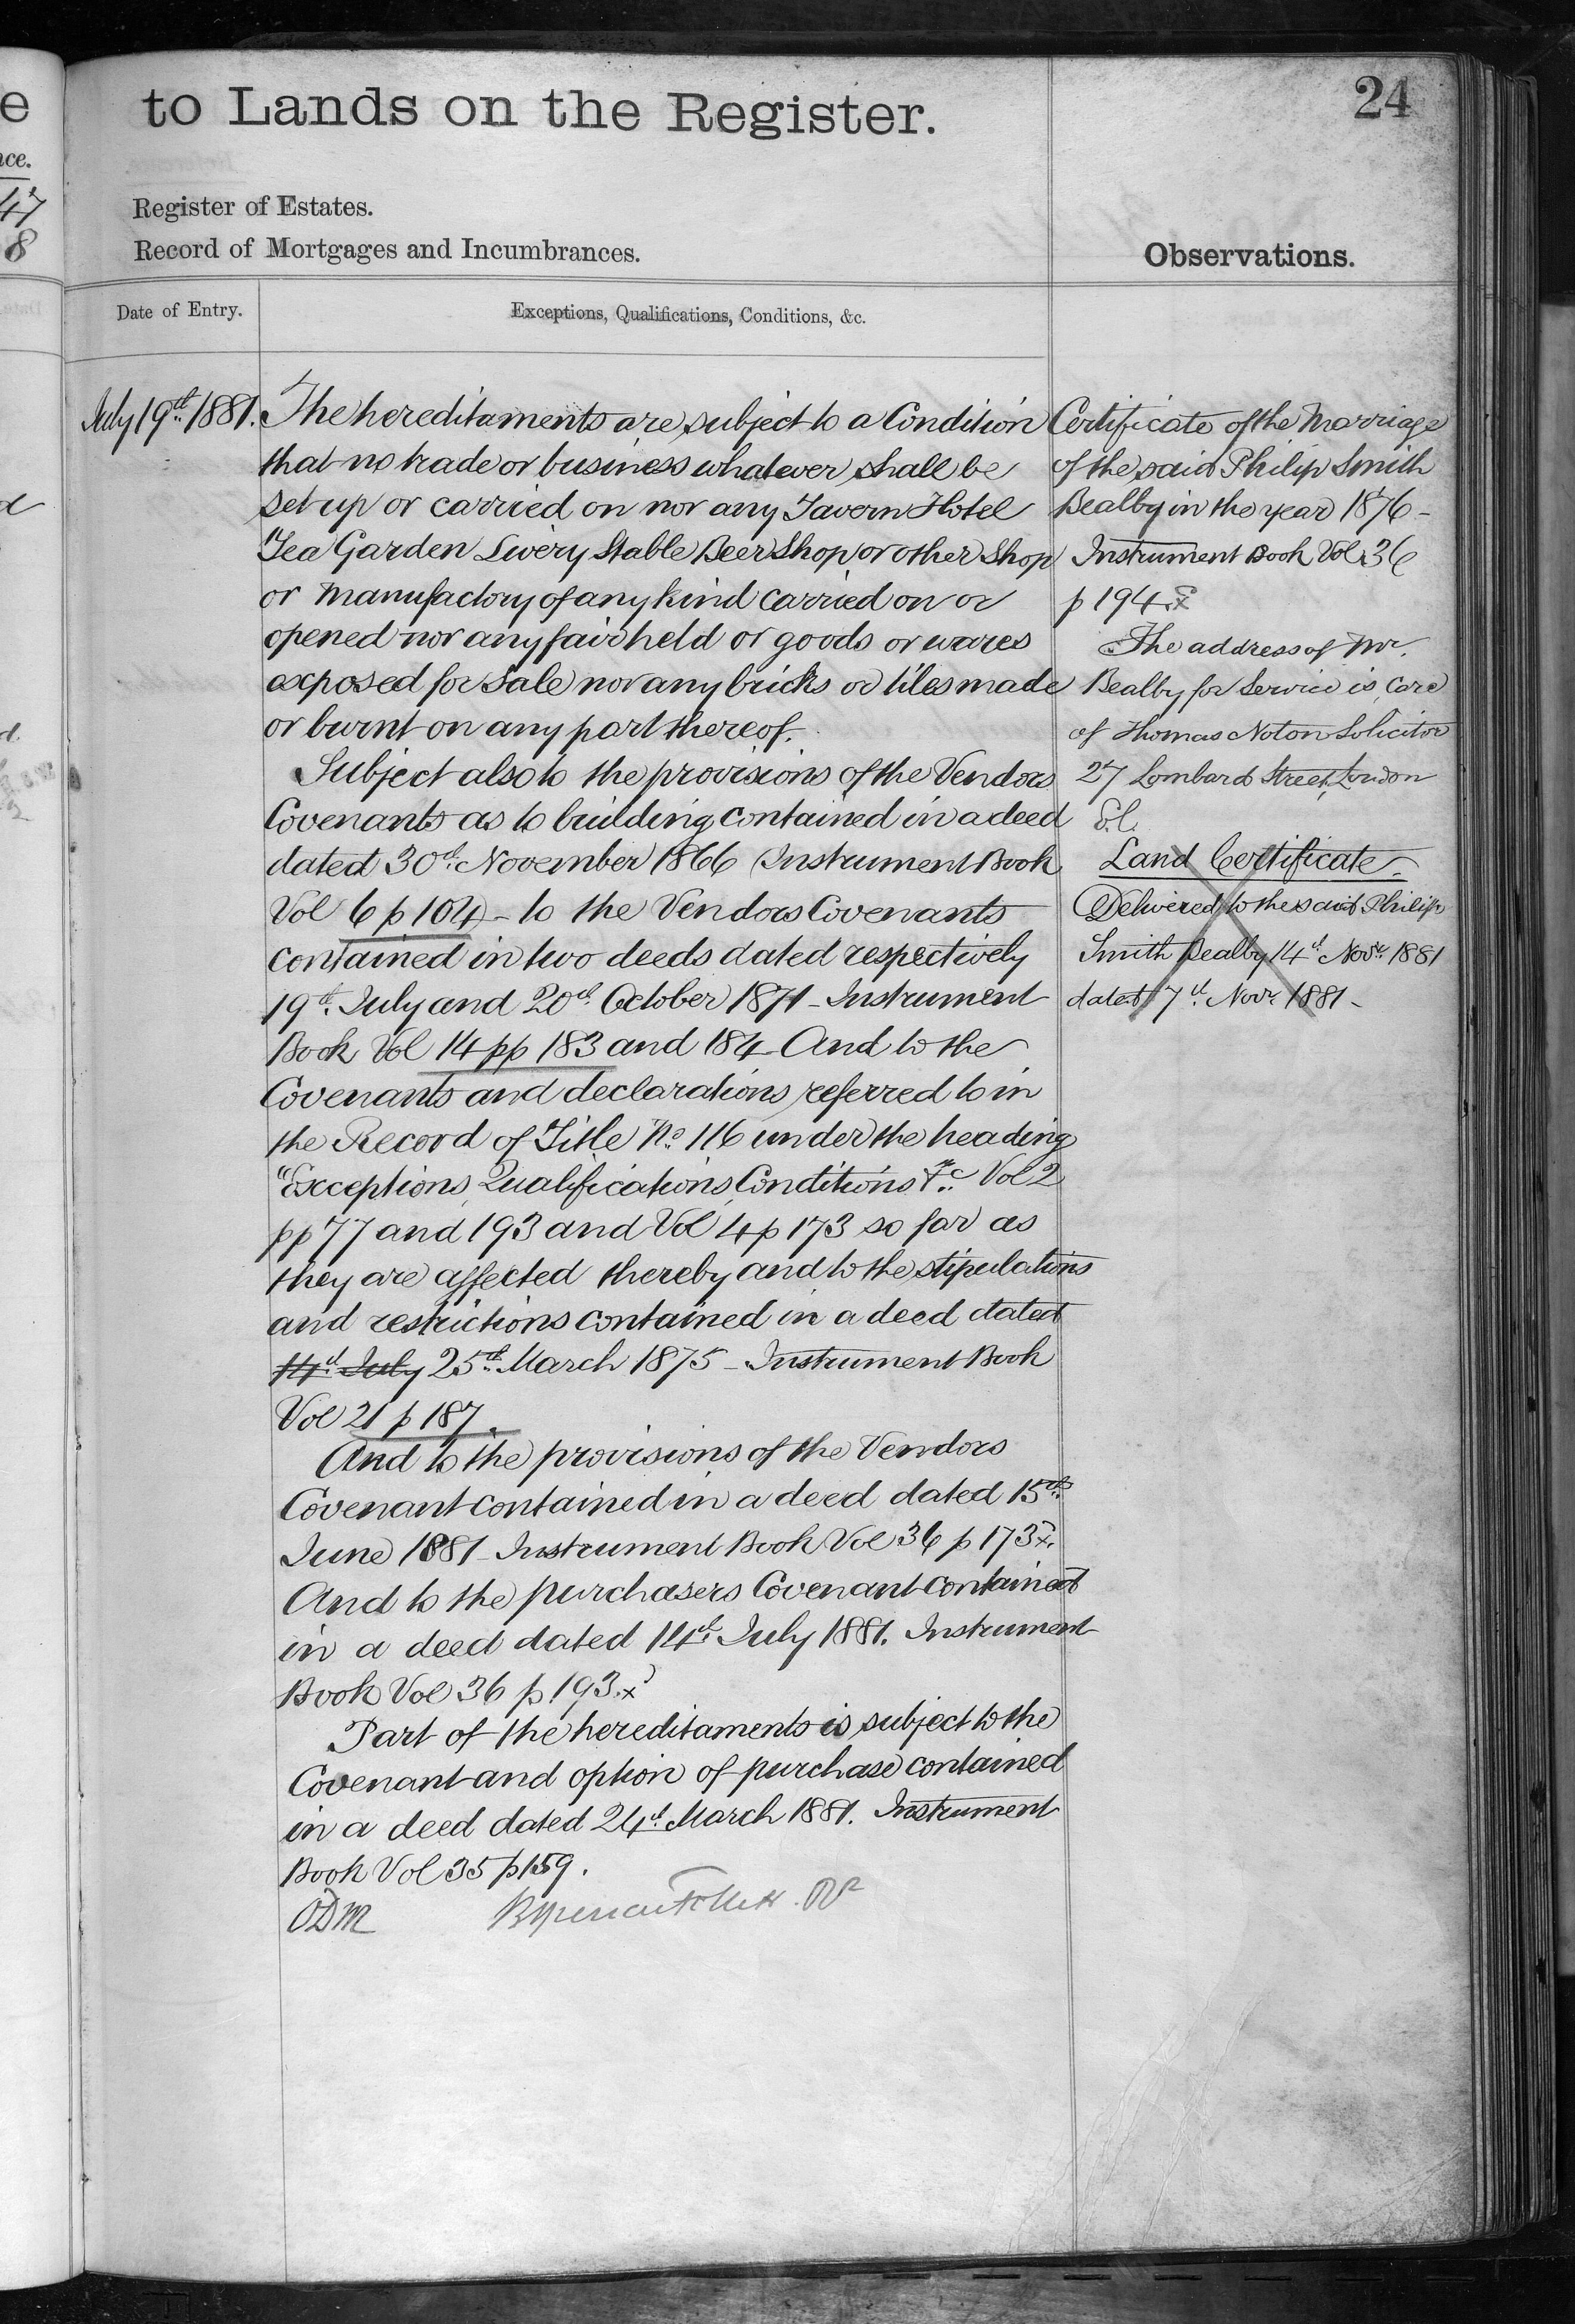 to Lands on the Register.
24
Register of Estates.
Record of Mortgages and Incumbrances.
Observations.
Date of Entry.
Exceptions, Qualifications, Conditions, &c.
July 19th 1881.
The hereditaments are subject to a Condition
that no trade or business whatever shall be
set up or carried on nor any Tavern Hotel
Tea Garden Livery Stable Beer Shop or other Shop
or Manufactory of any kind carried on or
opened nor any fair held or goods or wares
exposed for sale nor any bricks or tiles made
or burnt on any part thereof.
Subject also to the provisions of the Vendors
Covenants as to building contained in a deed
dated 30th November 1866 (Instrument Book
Vol 6 p 104) - to the Vendors Covenants
contained in two deeds dated respectively
19th July and 20th October 1871 - Instrument
Book Vol 14 pp 183 and 184 And to the
Covenants and declarations referred to in
the Record of Title No. 116 under the heading
"Exceptions, Qualifications, Conditions &c." Vol 2
pp 77 and 193 and Vol 4 p 173 so far as
they are affected thereby and to the stipulations
and restrictions contained in a deed dated
14th July 25th March 1875 - Instrument Book
Vol 21 p 187.
And to the provisions of the Vendors
Covenant contained in a deed dated 15th
June 1881 - Instrument Book Vol 36 p 173 x.
And to the purchasers Covenant contained
in a deed dated 14th July 1881. Instrument
Book Vol 36 p 193. x
Part of the hereditaments is subject to the
Covenant and option of purchase contained
in a deed dated 24th March 1881. Instrument
Book Vol 35 p 159.
ODM
Certificate of the Marriage
of the said Philip Smith
Bealby in the year 1876 -
Instrument Book Vol 36
p 194. x
The address of Mr.
Bealby for Service is, Care
of Thomas Noton Solicitor
27 Lombard Street, London
E.C.
Land Certificate.
Delivered to the said Philip
Smith Bealby 14th Novr 1881
dated 7th Novr 1881 -